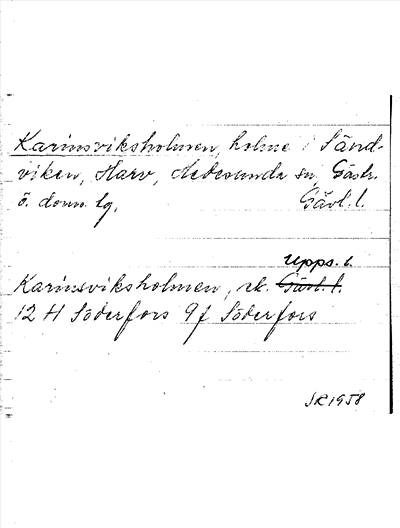 Karinsviksholmen, holme i Sand-
viken, Harv, Hedesunda sn, Gästr.
ö. domn. lg, Gävl. l.
Upps. l.
Karinsviksholmen, ek. Gävl. l.
12 H Söderfors 9f Söderfors
SR 1958